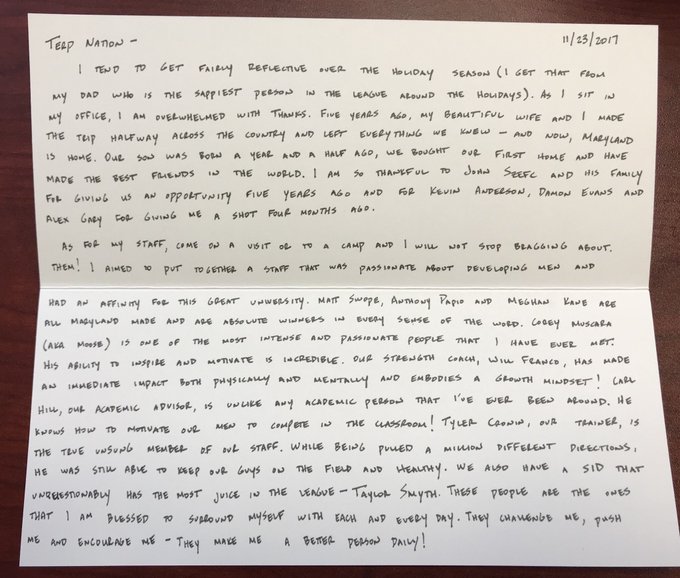 TERP NATION - 11/23/2017
I TEND TO GET FAIRLY REFLECTIVE OVER THE HOLIDAY SEASON (I GET THAT FROM
MY DAD WHO IS THE SAPPIEST PERSON IN THE LEAGUE AROUND THE HOLIDAYS). AS I SIT IN
MY OFFICE, I AM OVERWHELMED WITH THANKS. FIVE YEARS AGO, MY BEAUTIFUL WIFE AND I MADE
THE TRIP HALFWAY ACROSS THE COUNTRY AND LEFT EVERYTHING WE KNEW - AND NOW, MARYLAND
IS HOME. OUR SON WAS BORN A YEAR AND A HALF AGO, WE BOUGHT OUR FIRST HOME AND HAVE
MADE THE BEST FRIENDS IN THE WORLD. I AM SO THANKFUL TO JOHN SZEFC AND HIS FAMILY
FOR GIVING US AN OPPORTUNITY FIVE YEARS AGO AND FOR KEVIN ANDERSON, DAMON EVANS AND
ALEX GARY FOR GIVING ME A SHOT FOUR MONTHS AGO.
AS FOR MY STAFF, COME ON A VISIT OR TO A CAMP AND I WILL NOT STOP BRAGGING ABOUT
THEM! I AIMED TO PUT TOGETHER A STAFF THAT WAS PASSIONATE ABOUT DEVELOPING MEN AND
HAD AN AFFINITY FOR THIS GREAT UNIVERSITY. MATT SWOPE, ANTHONY PAPIO AND MEGHAN KANE ARE
ALL MARYLAND MADE AND ARE ABSOLUTE WINNERS IN EVERY SENSE OF THE WORD. COREY MUSCARA
(AKA MOOSE) IS ONE OF THE MOST INTENSE AND PASSIONATE PEOPLE THAT I HAVE EVER MET.
HIS ABILITY TO INSPIRE AND MOTIVATE IS INCREDIBLE. OUR STRENGTH COACH, WILL FRANCO, HAS MADE
AN IMMEDIATE IMPACT BOTH PHYSICALLY AND MENTALLY AND EMBODIES A GROWTH MINDSET! CARL
HILL, OUR ACADEMIC ADVISOR, IS UNLIKE ANY ACADEMIC PERSON THAT I'VE EVER BEEN AROUND. HE
KNOWS HOW TO MOTIVATE OUR MEN TO COMPETE IN THE CLASSROOM! TYLER CRONIN, OUR TRAINER, IS
THE TRUE UNSUNG MEMBER OF OUR STAFF. WHILE BEING PULLED A MILLION DIFFERENT DIRECTIONS,
HE WAS STILL ABLE TO KEEP OUR GUYS ON THE FIELD AND HEALTHY. WE ALSO HAVE A SID THAT
UNQUESTIONABLY HAS THE MOST JUICE IN THE LEAGUE - TAYLOR SMYTH. THESE PEOPLE ARE THE ONES
THAT I AM BLESSED TO SURROUND MYSELF WITH EACH AND EVERY DAY. THEY CHALLENGE ME, PUSH
ME AND ENCOURAGE ME - THEY MAKE ME A BETTER PERSON DAILY!